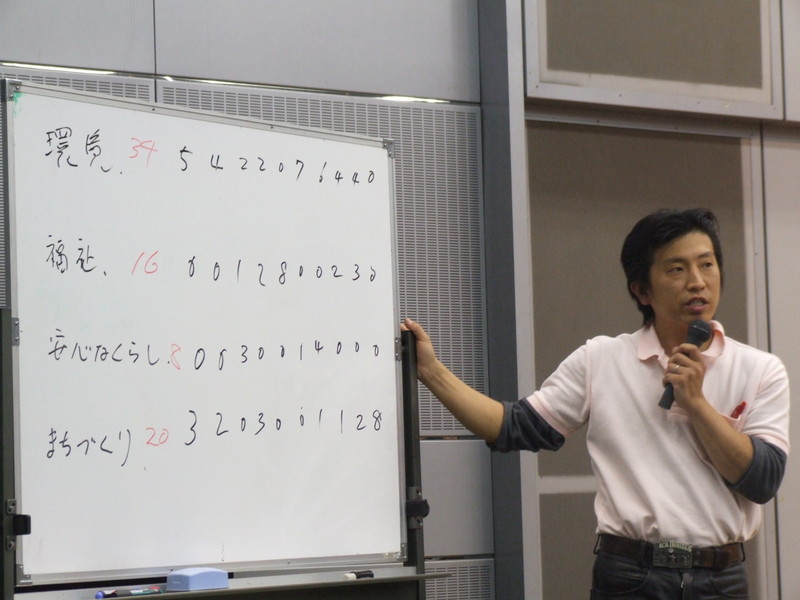 環境. 34 5 4 2 2 0 7 6 4 4 0
福祉. 16 0 0 1 2 8 0 0 2 3 0
安心なくらし. 8 0 0 3 0 0 1 4 0 0 0
まちづくり. 20 3 2 0 3 0 0 1 1 2 8